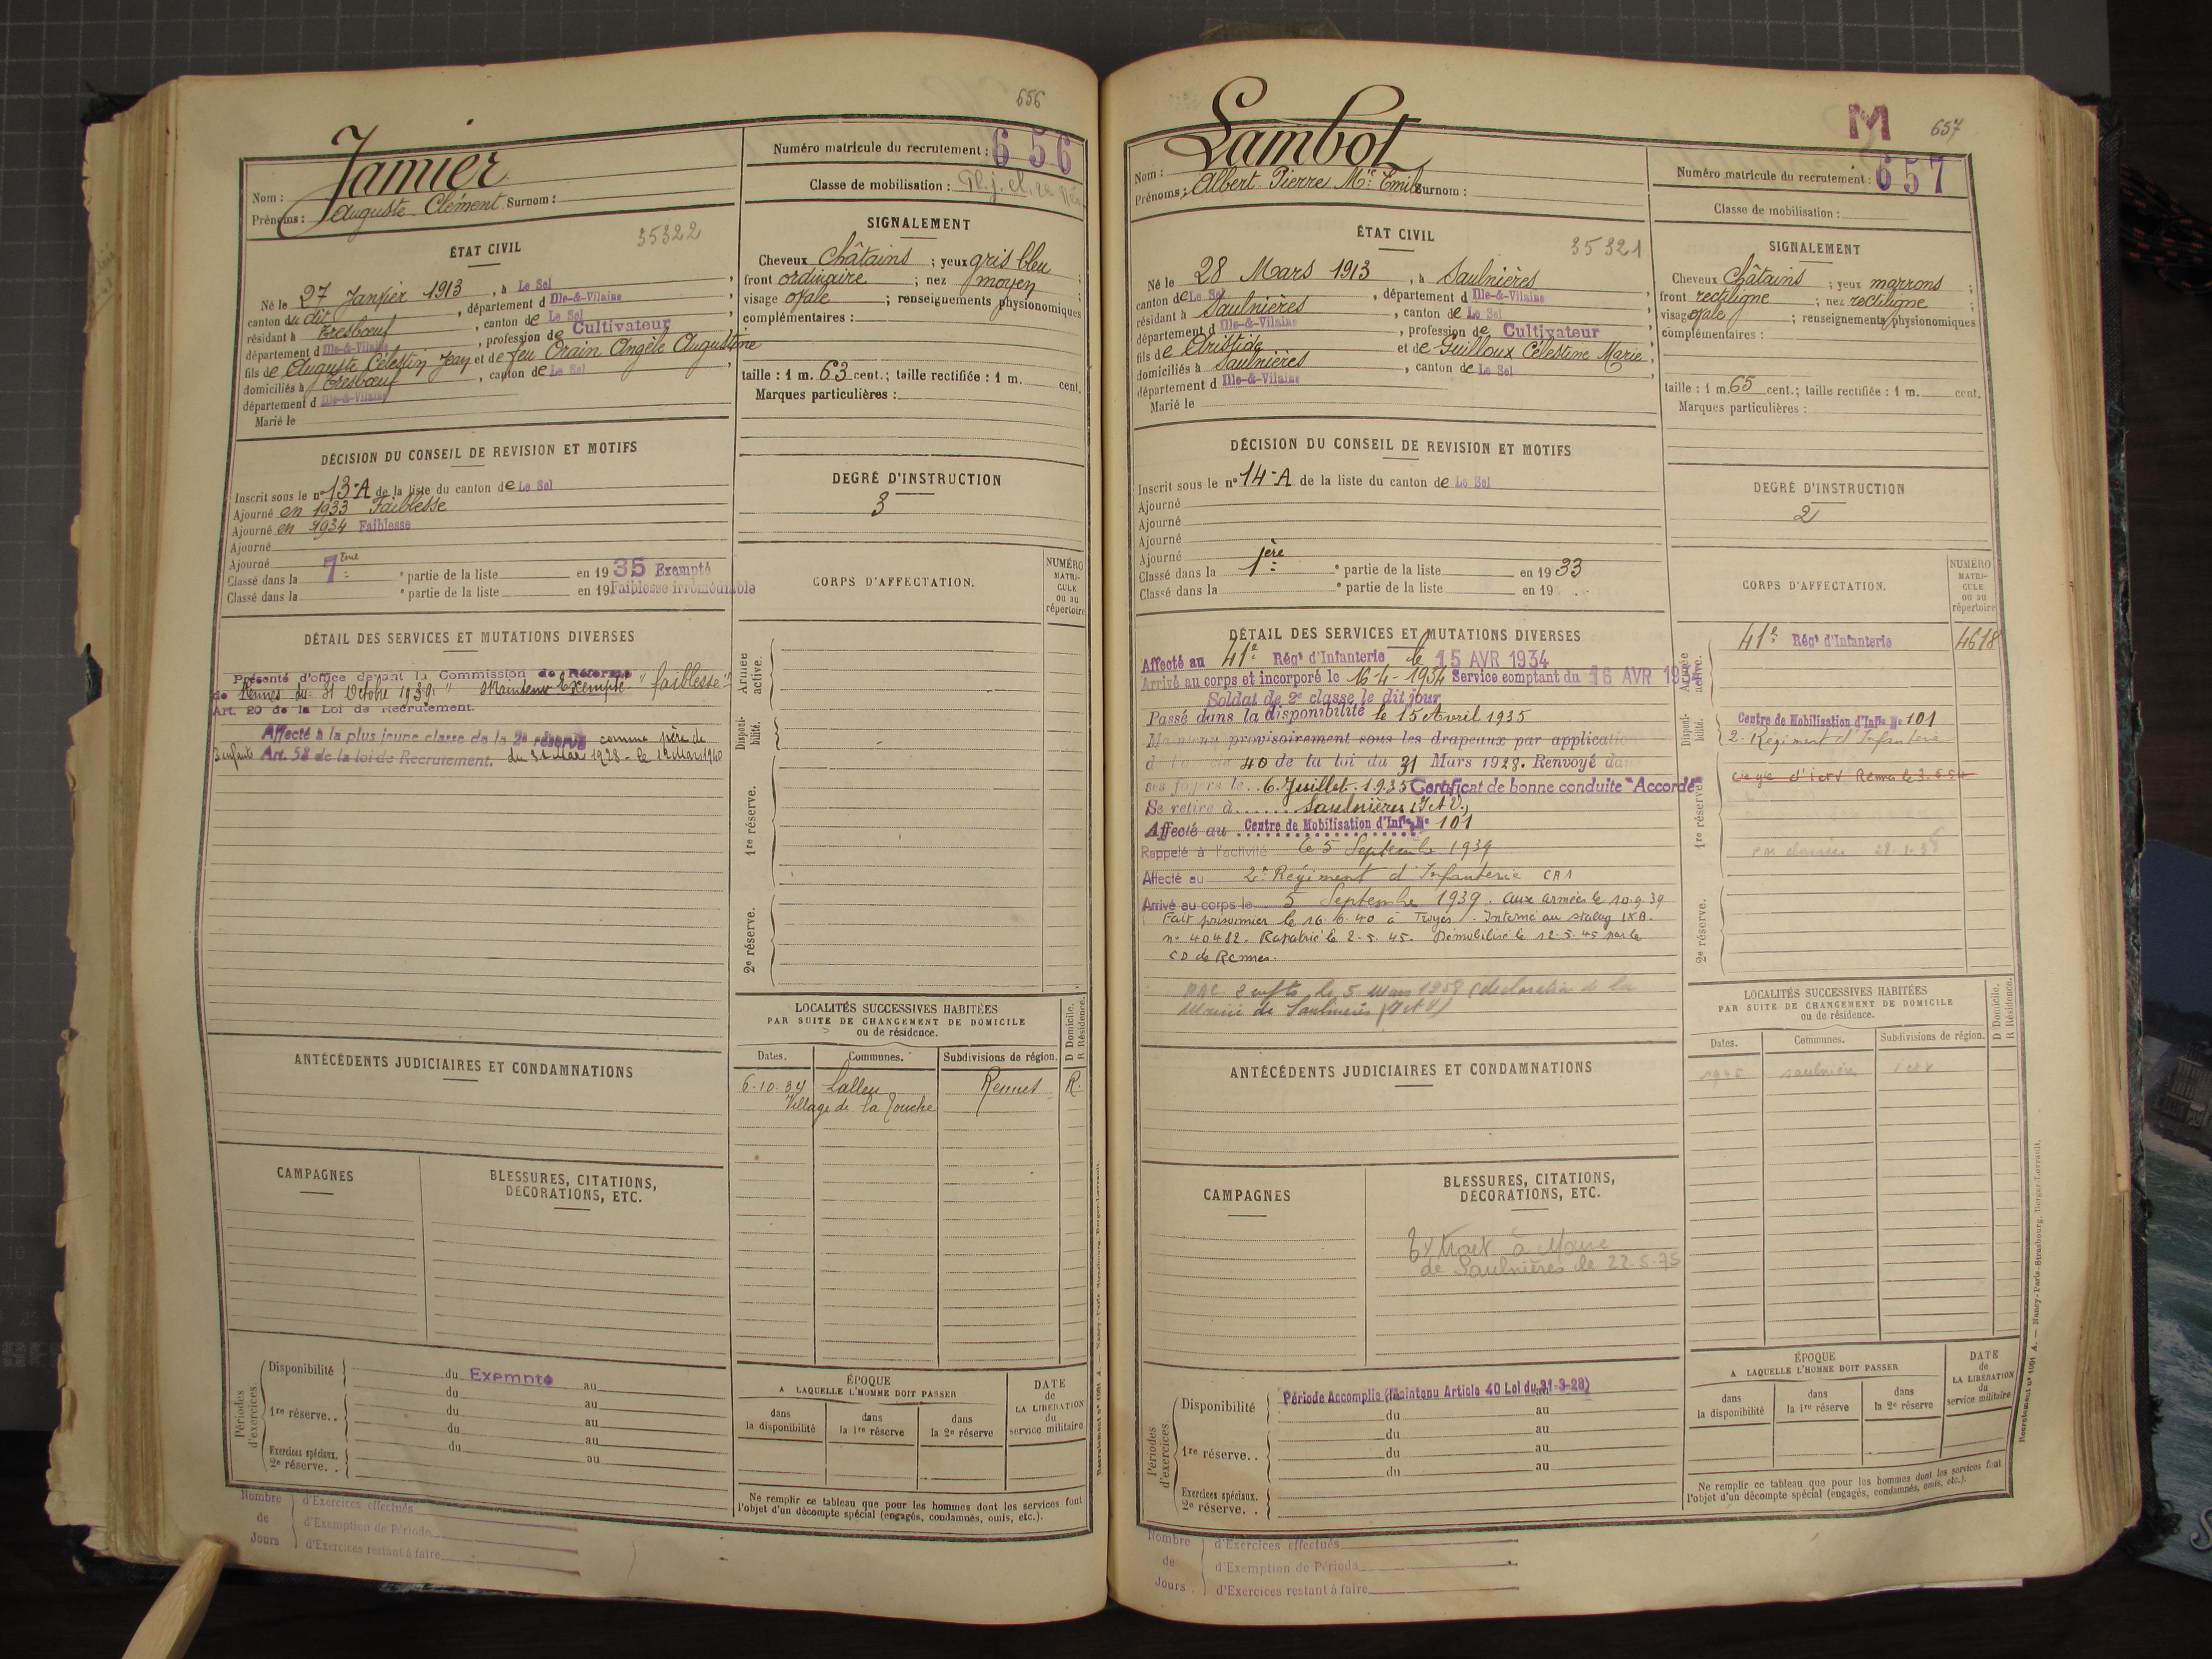 656
Jamier
Nom :
Prénoms : Auguste Clément Surnom :
Numéro matricule du recrutement : 656
Classe de mobilisation :
ÉTAT CIVIL
35322
Né le 27 Janvier 1913, à Le Sel,
canton du dit, département d Ille-&-Vilaine,
résidant à Tresbœuf, canton de Le Sel,
département d Ille-&-Vilaine, profession de Cultivateur,
fils de Auguste Célestin Jean et de feu Orain Angèle Augustine
domiciliés à Tresbœuf, canton de Le Sel,
département d Ille-&-Vilaine
Marié le
SIGNALEMENT
Cheveux Châtains ; yeux gris bleu ;
front ordinaire ; nez moyen ;
visage ovale ; renseignements physionomiques
complémentaires :
taille : 1 m. 63 cent.; taille rectifiée : 1 m. cent.
Marques particulières :
DÉCISION DU CONSEIL DE REVISION ET MOTIFS
Inscrit sous le n° 13-A de la liste du canton de Le Sel
Ajourné en 1933 Faiblesse
Ajourné en 1934 Faiblesse
Ajourné
Ajourné
Classé dans la 7ème ° partie de la liste en 1935 Exempté
Classé dans la ° partie de la liste en 19 Faiblesse irrémédiable
DEGRÉ D'INSTRUCTION
3
CORPS D'AFFECTATION.
NUMÉRO
MATRI-
CULE
ou au
répertoire
DÉTAIL DES SERVICES ET MUTATIONS DIVERSES
Présenté d'office devant la Commission de Réforme
de Rennes du 31 Octobre 1939 " Maintenu Exempté " faiblesse "
Art. 20 de la Loi de Recrutement.
Affecté à la plus jeune classe de la 2e réserve comme père de
3 enfants Art. 58 de la loi de Recrutement. du 31 Mars 1928 - le 12 Mars 1940
Armée
active.
Disponi-
bilité.
1re réserve.
2e réserve.
LOCALITÉS SUCCESSIVES HABITÉES
PAR SUITE DE CHANGEMENT DE DOMICILE
ou de résidence.
D Domicile.
R Résidence.
Dates. Communes. Subdivisions de région.
6-10-34 Lalleu Rennes R.
Village de la Touche
ANTÉCÉDENTS JUDICIAIRES ET CONDAMNATIONS
CAMPAGNES
BLESSURES, CITATIONS,
DÉCORATIONS, ETC.
Périodes
d'exercices.
Disponibilité du Exempté au
du au
1re réserve.. du au
du au
Exercices spéciaux. du au
2e réserve. .
ÉPOQUE
A LAQUELLE L'HOMME DOIT PASSER
dans
la disponibilité
dans
la 1re réserve
dans
la 2e réserve
DATE
de
LA LIBÉRATION
du
service militaire
Ne remplir ce tableau que pour les hommes dont les services font
l'objet d'un décompte spécial (engagés, condamnés, omis, etc.).
Nombre
de
Jours
d'Exercices effectués
d'Exemption de Période
d'Exercices restant à faire
M
657
Lambot
Nom :
Prénoms : Albert Pierre Mie Emile Surnom :
Numéro matricule du recrutement : 657
Classe de mobilisation :
ÉTAT CIVIL
35321
Né le 28 Mars 1913, à Saulnières
canton de Le Sel, département d Ille-&-Vilaine,
résidant à Saulnières, canton de Le Sel,
département d Ille-&-Vilaine, profession de Cultivateur,
fils de Aristide et de Guilloux Célestine Marie,
domiciliés à Saulnières, canton de Le Sel,
département d Ille-&-Vilaine
Marié le
SIGNALEMENT
Cheveux Châtains ; yeux marrons ;
front rectiligne ; nez rectiligne ;
visage ovale ; renseignements physionomiques
complémentaires :
taille : 1 m. 65 cent.; taille rectifiée : 1 m. cent.
Marques particulières :
DÉCISION DU CONSEIL DE REVISION ET MOTIFS
Inscrit sous le n° 14-A de la liste du canton de Le Sel
Ajourné
Ajourné
Ajourné
Ajourné
Classé dans la 1ère ° partie de la liste en 1933
Classé dans la ° partie de la liste en 19
DEGRÉ D'INSTRUCTION
2
CORPS D'AFFECTATION.
NUMÉRO
MATRI-
CULE
ou au
répertoire
DÉTAIL DES SERVICES ET MUTATIONS DIVERSES
Affecté au 41e Régt d'Infanterie le 15 AVR 1934
Arrivé au corps et incorporé le 16-4-1934 Service comptant du 16 AVR 1934
Soldat de 2e classe le dit jour
Passé dans la disponibilité le 15 Avril 1935
Maintenu provisoirement sous les drapeaux par application
40 de la loi du 31 Mars 1928. Renvoyé dans
ses foyers le 6 Juillet 1935 Certificat de bonne conduite "Accordé"
Se retire à Saulnières (I et V.)
Affecté au Centre de Mobilisation d'Infie N° 101
Rappelé à l'activité le 5 Septembre 1939
Affecté au 2e Régiment d'Infanterie CA1
Arrivé au corps le 5 Septembre 1939. aux armées le 10.9.39
Fait prisonnier le 16.6.40 à Troyes. Interné au stalag IXA.
n° 40482. Rapatrié le 2.5.45. Démobilisé le 12.5.45 par le
CD de Rennes.
2 enfts le 5 mars 1958 (déclaration de la
Mairie de Saulnières (I et V)
Armée
active.
41e Régt d'Infanterie 4618
Disponi-
bilité.
Centre de Mobilisation d'Infie N° 101
2e Régiment d'Infanterie
1re réserve.
28.1.38
2e réserve.
LOCALITÉS SUCCESSIVES HABITÉES
PAR SUITE DE CHANGEMENT DE DOMICILE
ou de résidence.
D Domicile.
R Résidence.
Dates. Communes. Subdivisions de région.
1945 Saulnières I et V
ANTÉCÉDENTS JUDICIAIRES ET CONDAMNATIONS
CAMPAGNES
BLESSURES, CITATIONS,
DÉCORATIONS, ETC.
Extrait à Mairie
de Saulnières le 22-5-75
Périodes
d'exercices.
Disponibilité Période Accomplie (Maintenu Article 40 Loi du 31-3-28)
du au
du au
1re réserve.. du au
du au
Exercices spéciaux.
2e réserve. .
ÉPOQUE
A LAQUELLE L'HOMME DOIT PASSER
dans
la disponibilité
dans
la 1re réserve
dans
la 2e réserve
DATE
de
LA LIBÉRATION
du
service militaire
Ne remplir ce tableau que pour les hommes dont les services font
l'objet d'un décompte spécial (engagés, condamnés, omis, etc.).
Nombre
de
Jours
d'Exercices effectués
d'Exemption de Période
d'Exercices restant à faire
Recrutement N° 1001 A. — Nancy-Paris-Strasbourg, Berger-Levrault.